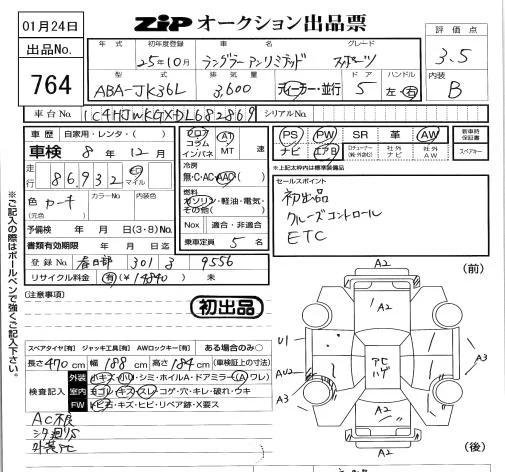 01月24日
ZiP オークション出品票
出品No.
764
年式 初年度登録 車名 グレード
25年10月 ラングラーアンリミテッド スポーツ
評価点
3.5
型式 排気量 ドア ハンドル
ABA-JK36L 3,600 ディーラー・並行 5 左・右
内装
B
車台No. 1C4HJWKGXDL682869 シリアルNo.
車歴 自家用・レンタ・( )
車検 8年 12月
走行 86,932 km マイル
色 (元色) カーキ カラーNo. 内装色
予備検 年 月 日(3・8)No.
書類有効期限 年 月 日迄
登録No. 春日部 301 す 9556
リサイクル料金 有(¥14840) 未
フロア コラム インパネ AT MT 速
冷房
無・C・AC・AAC( )
燃料
ガソリン・軽油・電気・その他( )
Nox 適合・非適合
乗車定員 5名
PS PW SR 革 AW 新車時保証書
ナビ エアB 社外ナビ 社外AW スペアキー
*上記太枠内は標準装備品
セールスポイント
初出品
クルーズコントロール
ETC
※ご記入の際はボールペンで強くご記入下さい。
(注意事項)
初出品
スペアタイヤ[有] ジャッキ工具[有] AWロックキー[有] ある場合のみ○
長さ 470cm 幅 188cm 高さ 184cm (車検証上の寸法)
検査記入
外装 小キズ・小U・シミ・ホイルA・ドアミラー(A)ワレ)
室内 ヨゴレ・キズ・スレ・コゲ・穴・キレ・破れ・ウキ
FW 飛石・キズ・ヒビ・リペア跡・X要ス
AC不良
シタ廻りS
外装PC
(前)
A2
1
A2
U1
AU2
A3
1
ACハゲ
1
A3
A2
A2
(後)